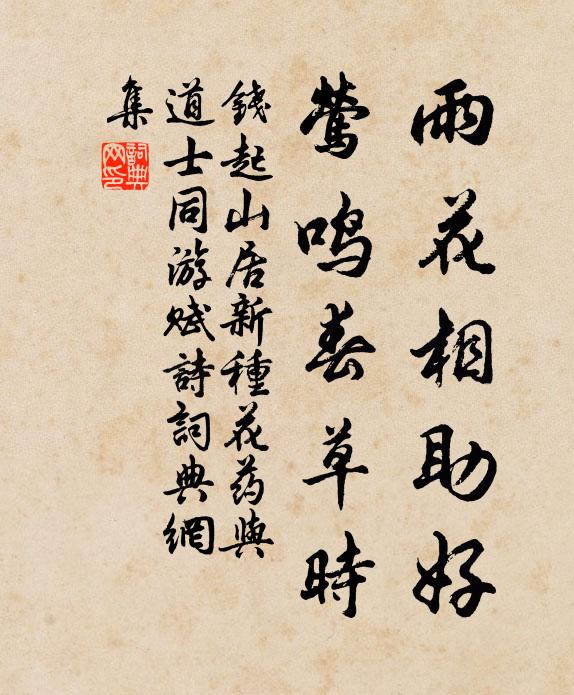 雨花相助好
莺鸣春草時
錢起山居新種花药與
道士同游赋詩詞典網
集
詞典网印